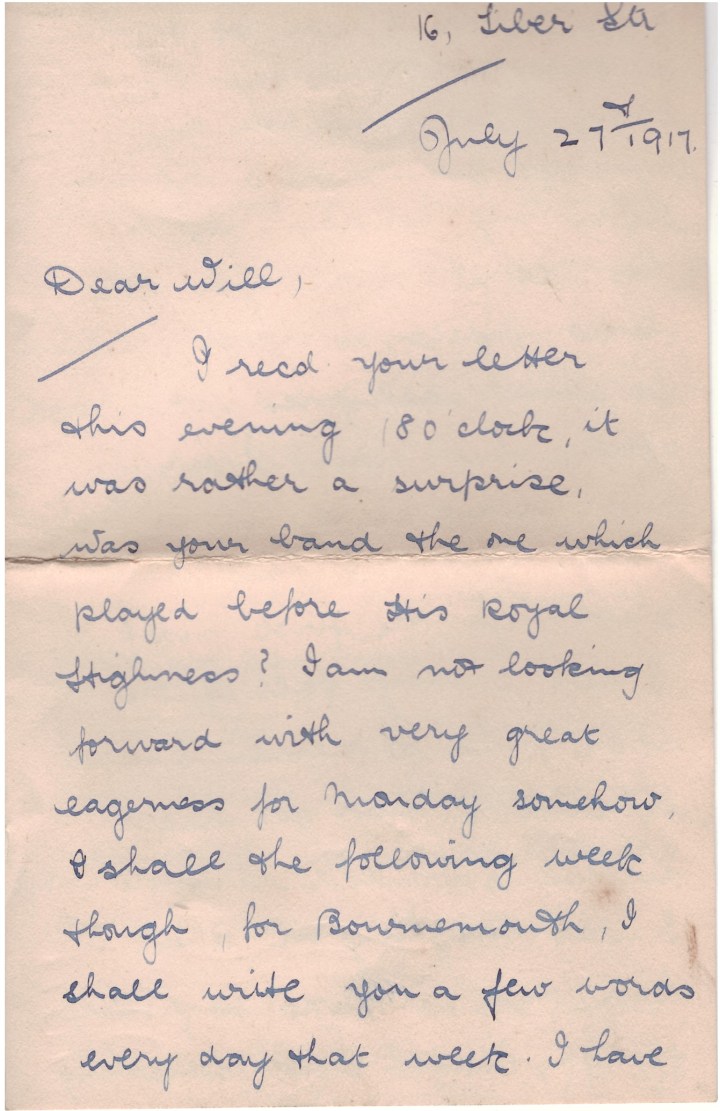 16, Tiber Str
July 27th 1917.
Dear Will,
I recd your letter
this evening 8 o'clock, it
was rather a surprise,
was your band the one which
played before His Royal
Highness? I am not looking
forward with very great
eagerness for Monday somehow,
I shall the following week
though, for Bournemouth, I
shall write you a few words
every day that week. I have